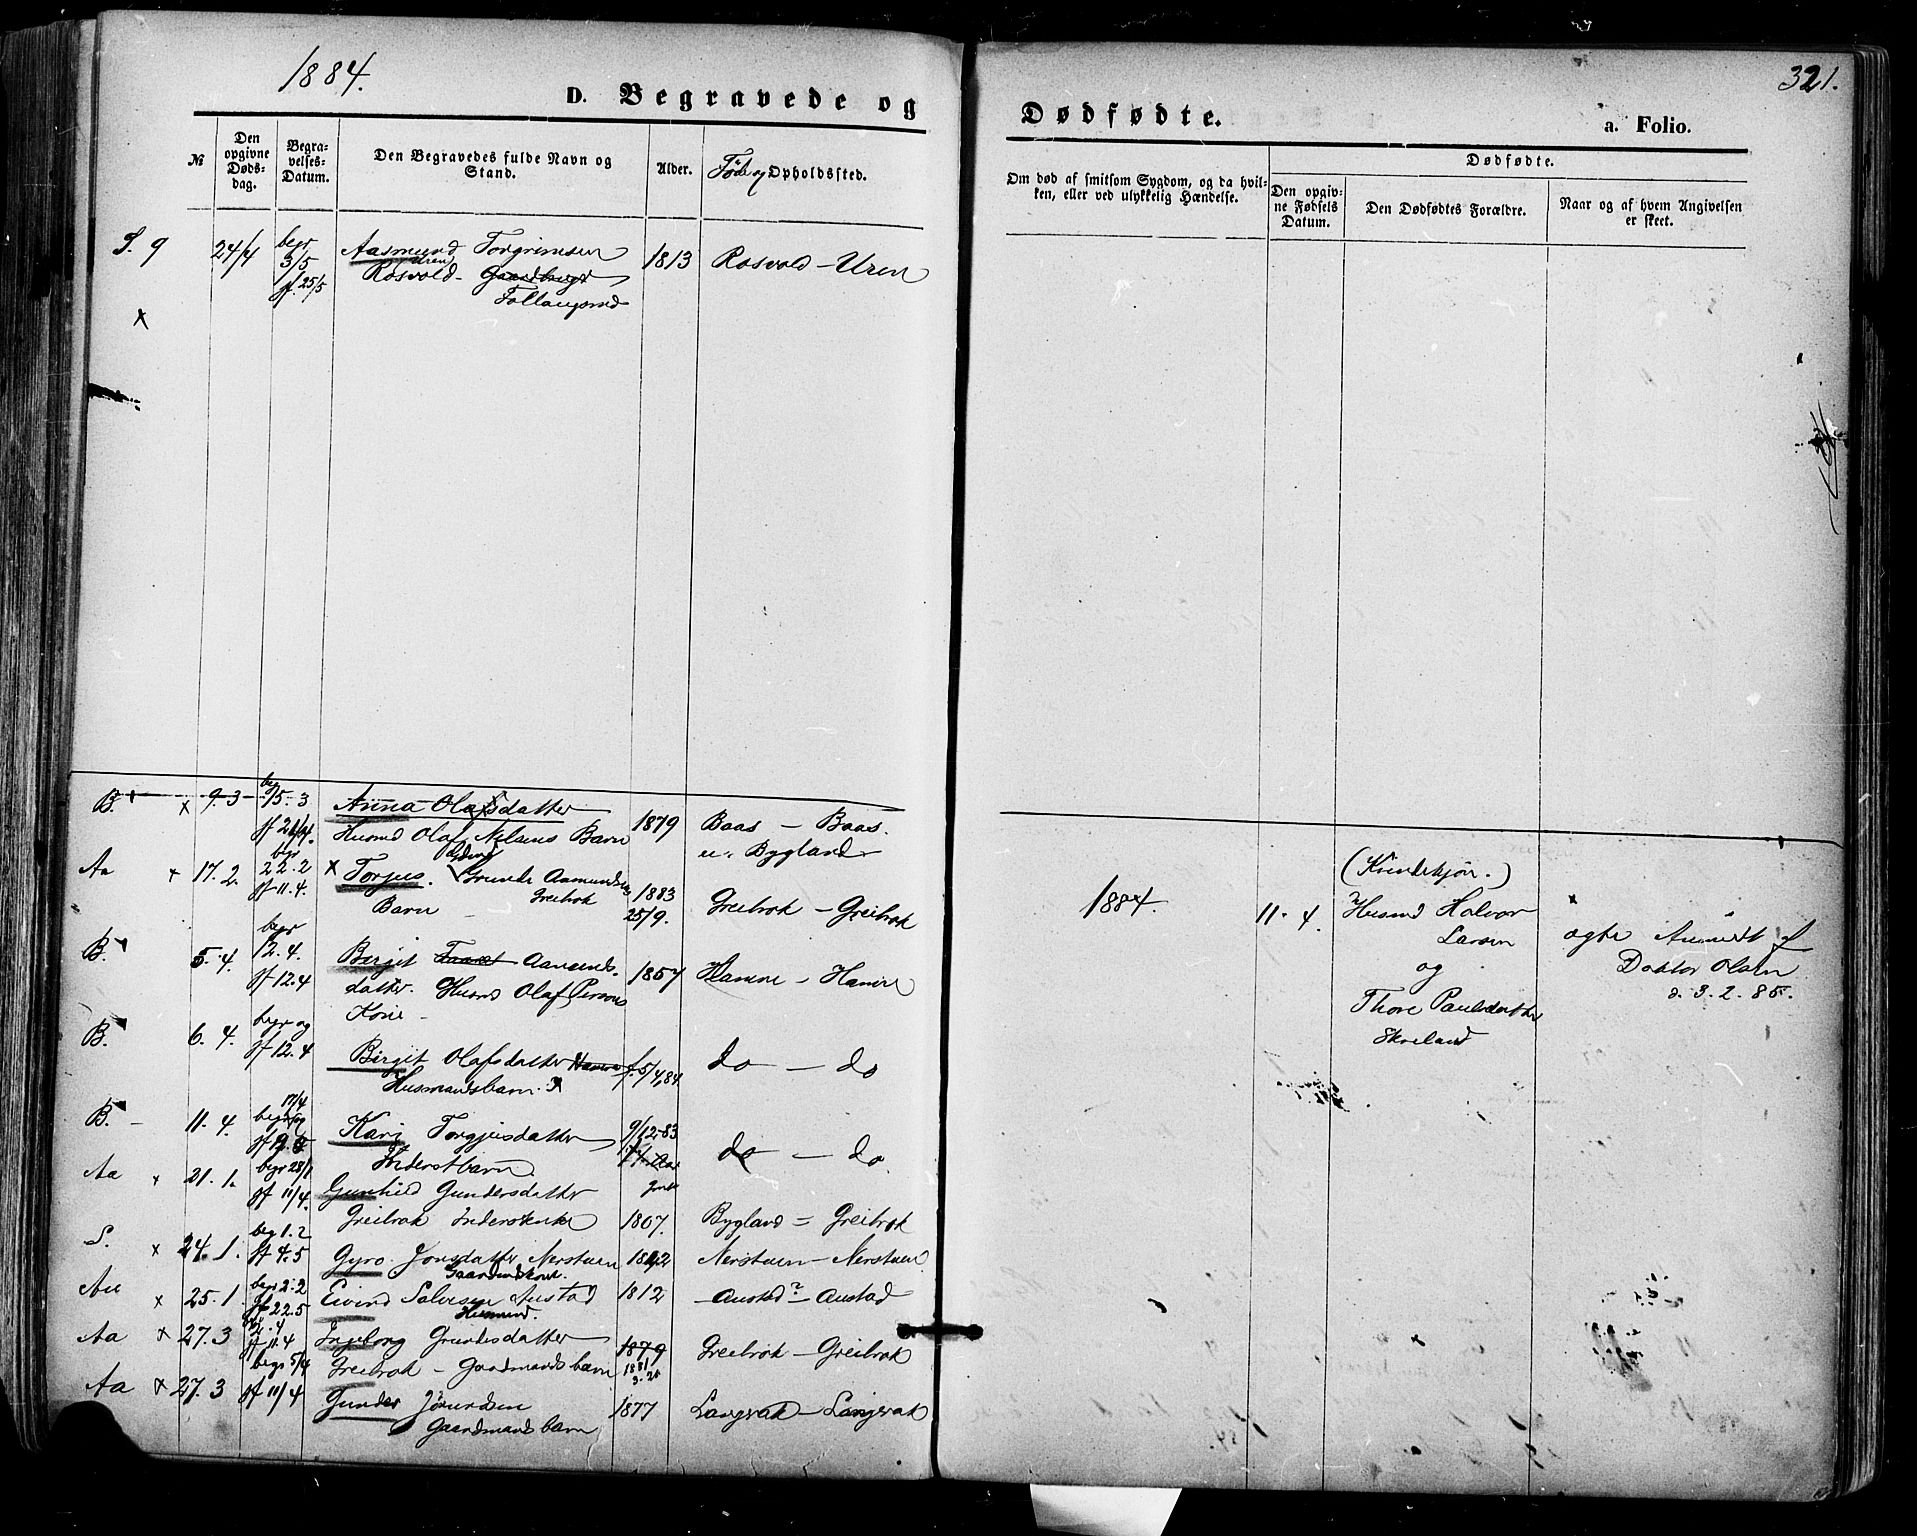 1884.
D. Begravede og
№
Den opgivne Døds-dag.
Begra-velses-Datum.
Den Begravedes fulde Navn og Stand.
Alder.
Føde og Opholdssted.
S. 9 24/4 begr 3/5 Aasmund Torgrimsen 1813 Rosvold - Uren
jf. 25/5 Rosvold - Gaardbruger
(Uren)
x
B. x 9.3 begr 15.3 Anna Olafsdatter
jf Husmd Olaf Nilsens Barn 1879 Baas - Baas.
Bygland
Aa x 17.2. begr 22.2 x Torjus. Grunde Aamundsens 1883
jf 11.4. Greibrok
Barn 25/9. Greibrok - Greibrok
B. 5.4. begr 12.4. Birgit Aanunds- 1857 Hamre - Hamre
jf 12.4 datter. Husmd Olaf Persens
Kone -
B. 6.4. begr og jf 12.4 Birgit Olafsdatter Hamre f. 5/4 84 do - do
Husmandsbarn.
B. - 11.4. begr og 17/4 Kari Torgjusdatter 9/12 83 do - do
jf Inderstbarn
Aa x 21.1. begr 28/1 Gunhild Gundersdatter
jf 11/4. Greibrok 1807. Bygland = Greibrok
S. x 24.1. begr 1.2 jf 4.5 Gyro Jonsdatter Nerstuen Nerstuen - Nerstuen
Gaardmdskone.
Au x 25.1. begr 2.2 jf 22.5 Eivind Salvesen Austad 1812 Austad - Austad
Husmand.
Aa x 27.3 jf 11.4 Ingeborg Grundesdatter 1879 Greibrok - Greibrok
Greibrok - Gaardmands barn 1881
Aa x 27.3 begr 5/4 jf 11/4 Gunder Jørundsen 1877 Langerak - Langerak
Gaardmands barn
Dødfødte.
321.
a. Folio.
Om død af smitsom Sygdom, og da hvil-
ken, eller ved ulykkelig Hændelse.
Dødfødte.
Den opgiv-
ne Fødsels
Datum.
Den Dødfødtes Forældre.
Naar og af hvem Angivelsen
er skeet.
1884.
11.4.
(Kvindekjøn.)
Husmd Halvor
Larsen
og
Thore Paulsdatter
Skreland
x
ogte Anmeldt af
Doktor Olsen
d. 3.2.85.